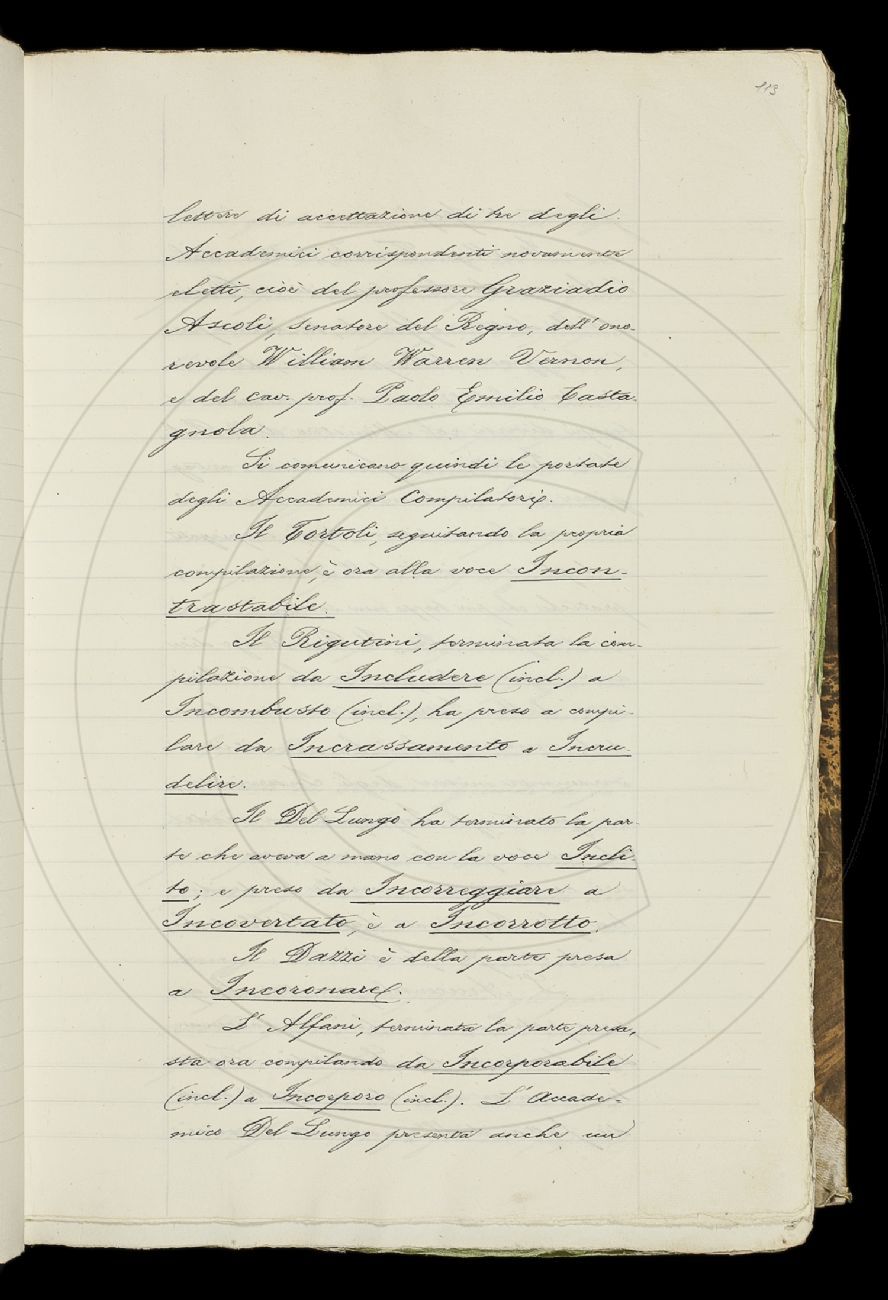 113
lettere di accettazione di tre degli
Accademici corrispondenti novamente
eletti, cioè del professore Graziadio
Ascoli, senatore del Regno, dell'ono-
revole William Warren Vernon,
e del cav. prof. Paolo Emilio Casta-
gnola.
Si comunicano quindi le portate
degli Accademici Compilatori.
Il Tortoli, seguitando la propria
compilazione, è ora alla voce Incon-
trastabile.
Il Rigutini, terminata la com-
pilazione da Includere (incl.) a
Incombusto (incl.), ha preso a compi-
lare da Incrassamento a Incru-
delire.
Il Del Lungo ha terminato la par-
te che aveva a mano con la voce Incli-
to; e preso da Incorreggiare a
Incovertato, è a Incorrotto.
Il Dazzi è della parte presa
a Incoronare.
L'Alfani, terminata la parte presa,
sta ora compilando da Incorporabile
(incl.) a Incorporo (incl.). L'Accade-
mico Del Lungo presenta anche un